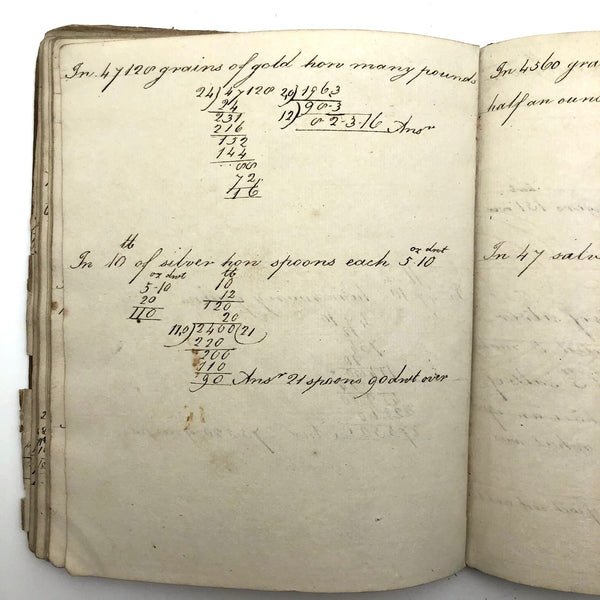 In 47128 grains of gold how many pounds
24)47128 20)1963
24 12)98-3
231 8-2-3-16 Ansr
216
152
144
88
72
16
lb
In 10 of silver how spoons each 5-10
oz dwt
oz dwt lb
5-10 10
20 12
110 120
20
110)2400(21
220
200
110
90 Ansr 21 spoons 90dwt over
In 4560 gra
half an oun
In 47 salv